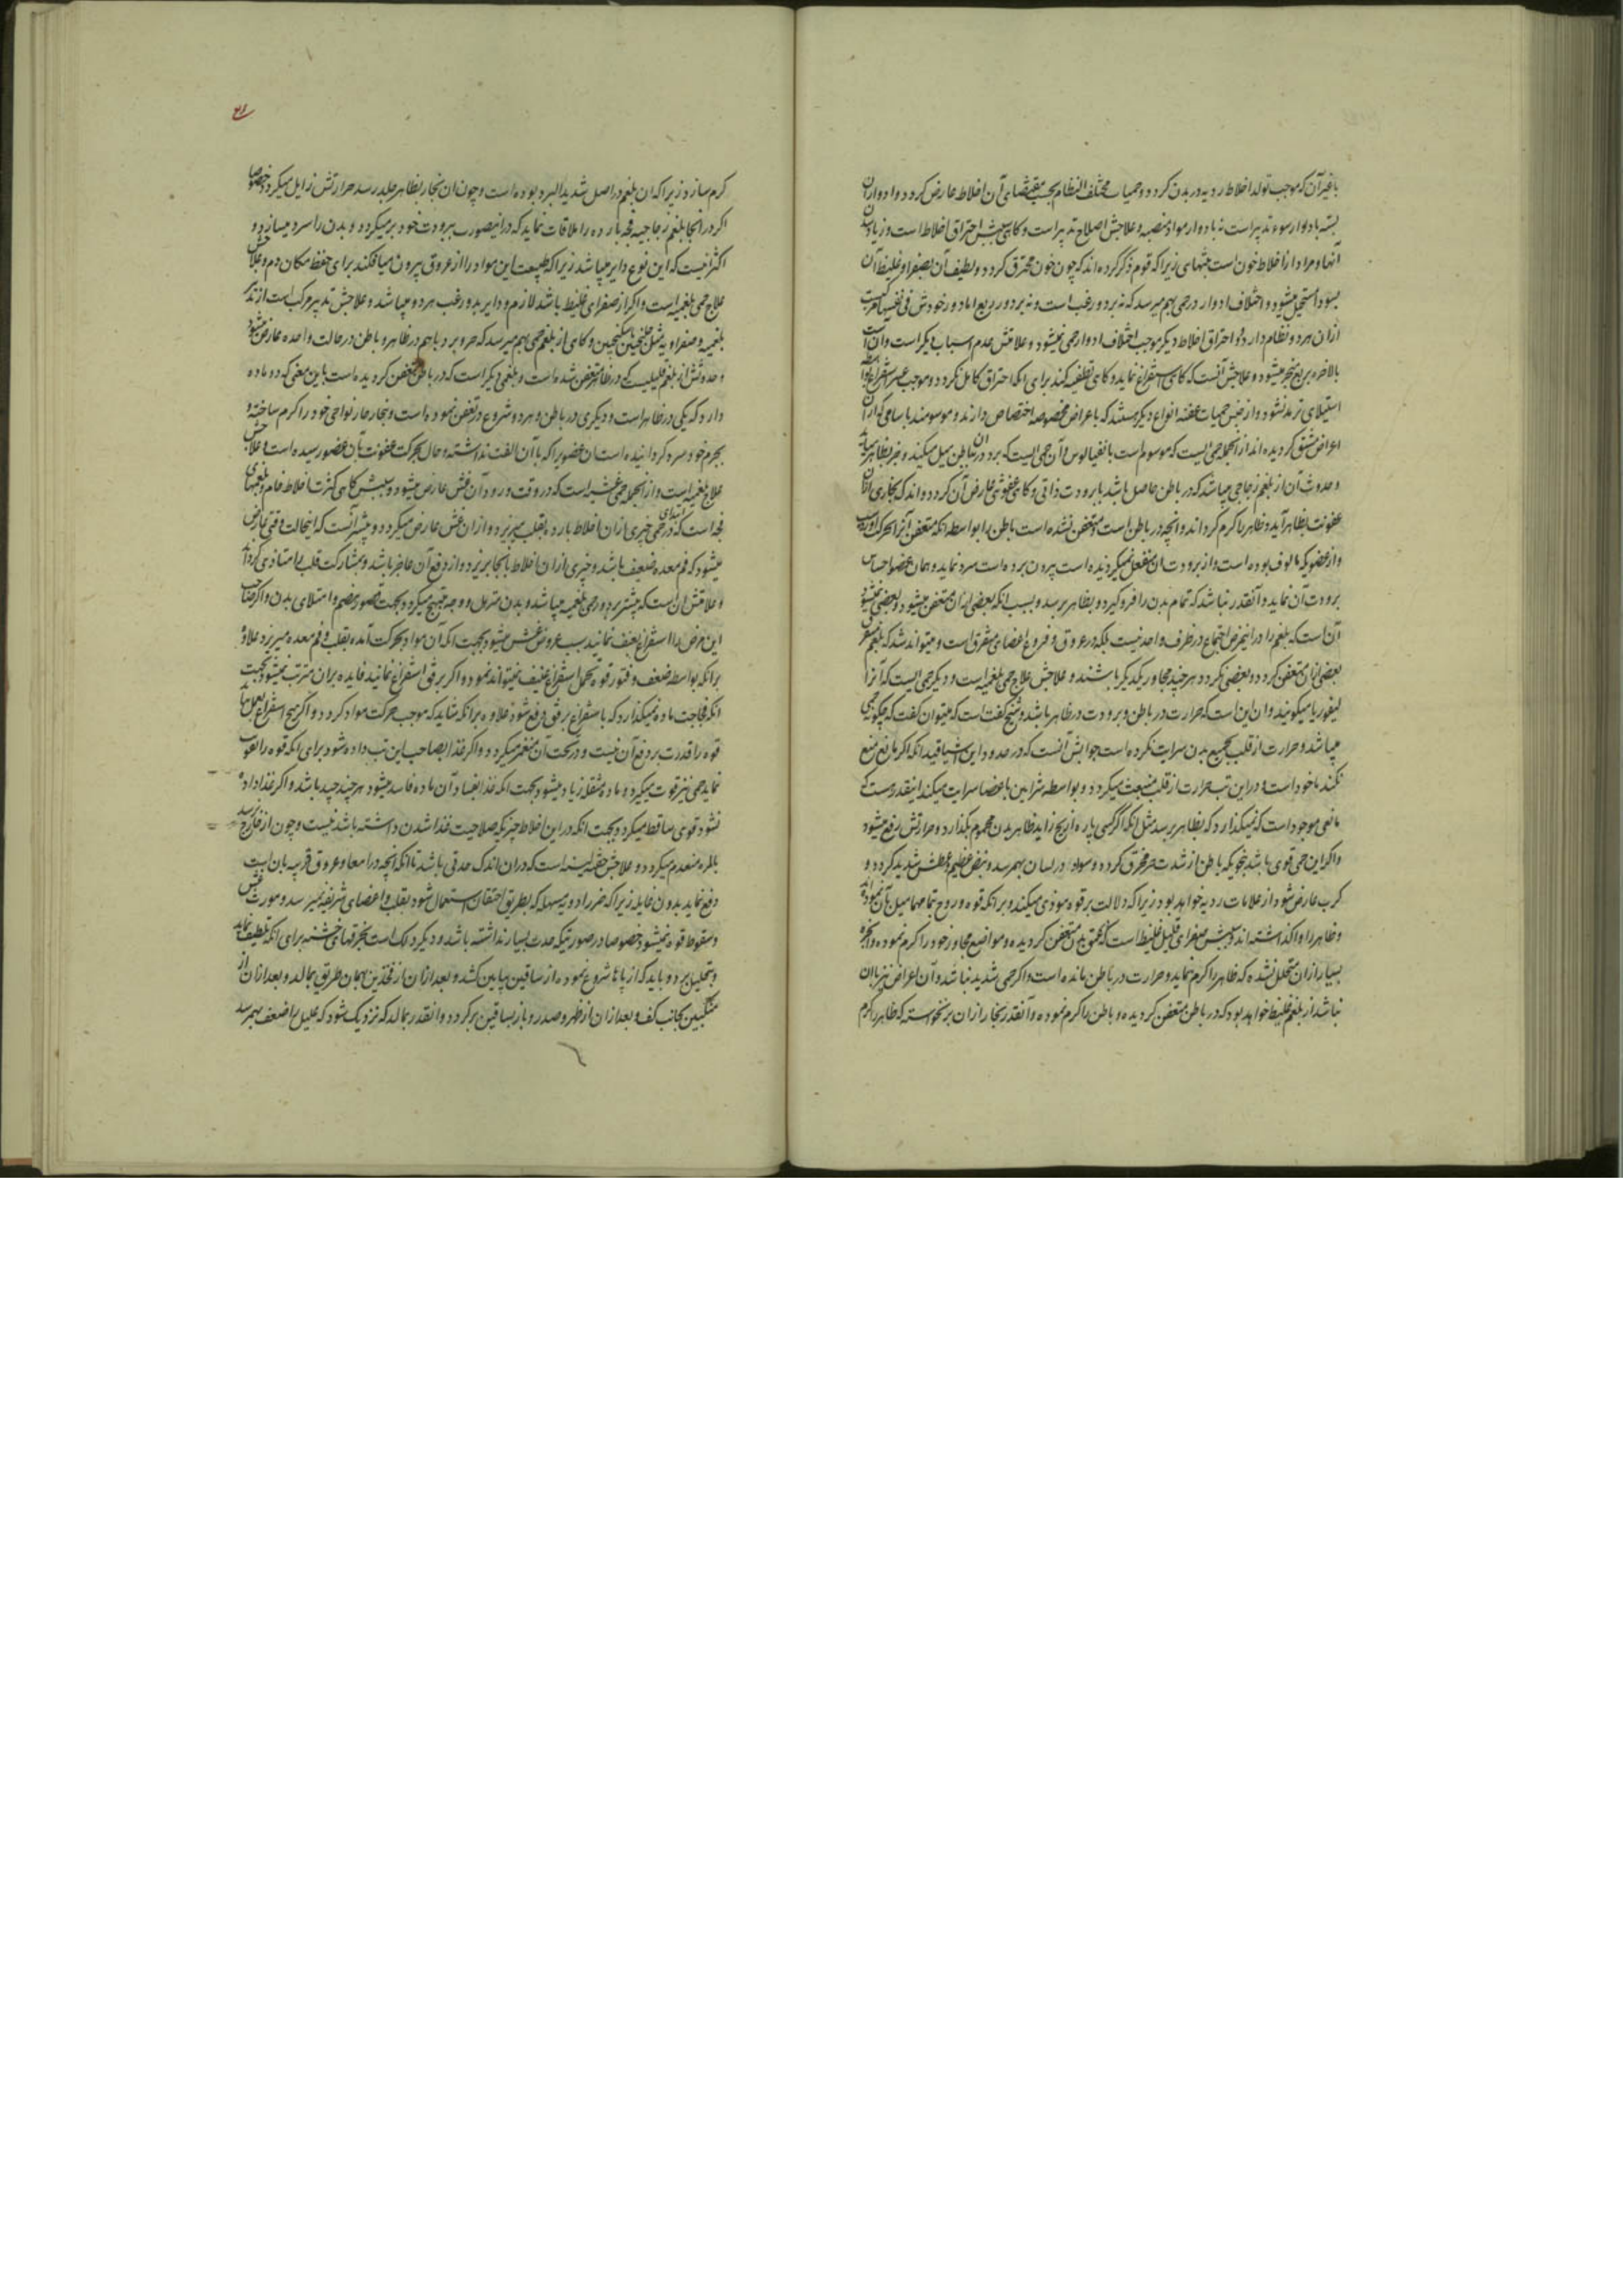 باغیر آن که موجب تولد اخلاط ردیه در بدن گردد و حمیات مختلف النظام بحسب مقتضای آن اخلاط عارض گردد و ادوار آن
بسته بادوار سوء تدبیر است نه بادوار مواد منصبه و علاجش اصلاح تدبیر است و گاهی سببش احتراق اخلاط است و زیاد
آنها و مراد از اخلاط خون است منتهای زیرا که قوم ذکر کرده اند که چون خون محترق گردد و لطیف آن بصفرا و غلیظ آن
بسودا مستحیل میشود و اختلاف ادوار در حمی بهم میرسد که نه بر دور غب است و نه بر دور ربع اما دور خودش فی نفسها
ازان هر دو نظام دارد و احتراق اخلاط دیگر موجب اختلاف ادوار حمی نمیشود و علامتش عدم اسباب دیگر است و آن است
بالاخره بربع منجر میشود و علاجش آنست که گاهی استفراغ نماید و گاهی تطفیه کند برای آنکه احتراق کامل نگردد و موجب عسر استفراغ
استیلای تر نه نشود و از جنس حمیات عفنه انواع دیگر هستند که باعراض مخصوصه اختصاص دارند و موسومند باسامی که از آن
اعراض مشتق گردیده اند از آنجمله حمی ایست که موسوم است بانفیالوس و آن حمی ایست که برد در آن بباطن میل میکند و حر بظاهر
و حدوث آن از بلغم زجاجی میباشد که در باطن حاصل باشد با برودت ذاتی و گاهی عفونتی عارض آن گردد و اند که بخاری ازان
عفونت بظاهر آید و ظاهر را گرم گرداند و آنچه در باطن است و متعفن نشده است باطن را بواسطه آنکه متعفن آنرا بحرکت آورده
و از عضویکه مالوف بوده است و از برودت آن منفعل نمیگردیده است بیرون برده است سرد نماید و همان عضو احساس
برودت آن نماید و آنقدر نباشد که تمام بدن را فروگیرد و بظاهر برسد و بسبب آنکه بعضی ازان متعفن میشود و بعضی نمیشود
آن است که بلغم را در این مرض اجتماع در ظرف واحد نیست بلکه در عروق و فروع اعضای متفرق است و میتواند شد که بلغم متفرق
بعضی ازان متعفن گردد و بعضی نگردد هر چند مجاور یکدیگر باشند و علاجش علاج حمی بلغمیه است و دیگر حمی ایست که آنرا
لیفوریا میگویند و آن این است که حرارت در باطن و برودت در ظاهر باشد و شیخ گفته است که میتوان گفت که چگونه حمی
میباشد و حرارت از قلب بجمیع بدن سرایت نکرده است جوابش آنست که در حدود این اشیا قید آنکه اگر مانع منع
نکند ماخود است و در این تب حرارت از قلب منبعث میگردد و بواسطه شرایین باعضا سرایت میکند اینقدر هست که
مانعی موجود است که نمیگذارد که بظاهر برسد مثل آنکه اگر کسی پاره از یخ زاید بظاهر بدن محموم بگذارد و حرارتش رفع میشود
و اگر این حمی قوی باشد بنحویکه باطن از شدت حر محترق گردد و سواد در لسان بهم رسد و نبض عظیم و عطش شدید گردد و
کرب عارض شود از علامات ردیه خواهد بود زیرا که دلالت بر قوه موذی میکند و بر آنکه قوه و روح بتمامها میل بآن نموده
و ظاهر را وا گذاشته اند و سببش صفرای قلیل غلیظ است که بعمق بدن متعفن گردیده و مواضع مجاور خود را گرم نموده و ابخره
بسیار ازان متحلل نشده که ظاهر را گرم نماید و حرارت در باطن مانده است و اگر حمی شدید نباشد و آن اعراض نیز با آن
نباشد از بلغم غلیظ خواهد بود که در باطن متعفن گردیده و باطن را گرم نموده و آنقدر بخار ازان بر نخواسته که ظاهر را گرم
گرم سازد زیرا که آن بلغم در اصل شدید البرد بوده است و چون آن بخار بظاهر جلد رسد حرارتش زایل میگردد خصوصا
اگر در آنجا بلغم زجاجیه فجه بارده را ملاقات نماید که در اینصورت ببرودت خود بر میگردد و بدن را سرد میسازد و
اکثر نیست که این نوع دایره میباشد زیرا که طبیعت این مواد را از عروق بیرون میافکند برای حفظ مکان دم و علاجش
علاج حمی بلغمیه است و اگر از صفرای غلیظ باشد لازم و دایر بدور غب هر دو میباشد و علاجش تدبیر مرکب است از تدبیر
بلغمیه و صفراویه مثل سکنجبین و گاهی از بلغم حمی بهم میرسد که حر و برد باهم در ظاهر و باطن در حالت واحده عارض میشود
و حدوثش از بلغم قلیلیست که در ظاهر متعفن شده است و بلغمی دیگر است که در باطن متعفن گردیده است باین معنی که دو ماده
دارد که یکی در ظاهر است و دیگری در باطن و هر دو شروع در تعفن نموده است و بخار حار نواحی خود را گرم ساخته و
بجرم خود سرد گردانیده است آن عضو را که با آن الفت نداشته و حال بحرکت عفونت بآن عضو رسیده است علاجش
علاج بلغمیه است و از آنجمله حمی غشیه است که در وقت ورود آن غشی عارض میشود و سببش گاهی کثرت اخلاط خام و بلغمیهای
فجه است که در ابتدای حمی چیزی ازان اخلاط بارده بقلب میریزد و ازان غشی عارض میگردد و بیشتر آنست که اینحالت وقتی عارض
میشود که فم معده ضعیف باشد و چیزی ازان اخلاط بآنجا بریزد و از دفع آن عاجز باشد و بمشارکت قلب را متاذی گرداند
و علامتش آن است که بیشتر بر دور حمی بلغمیه میباشد و بدن متربل و وجه متهیج میگردد بجهت قصور هضم و امتلای بدن و اگر صاحب
این مرض را استفراغ بعنف نمایند سبب عروض غشی میشود بجهت آنکه آن مواد بحرکت آمده بقلب و فم معده میریزد علاوه
بر آنکه بواسطه ضعف و فتور قوه تحمل استفراغ عنیف نمیتواند نمود و اگر برفق استفراغ نمایند فایده بر آن مترتب نمیشود بجهت
آنکه فجاجت ماده نمیگذارد که باستفراغ برفق دفع شود علاوه بر آنکه شاید که موجب حرکت مواد گردد و اگر هیچ استفراغ بعمل نیاید
قوه را قدرت بر دفع آن نیست و در تحت آن منغمر میگردد و اگر غذا بصاحب این تب داده شود برای آنکه قوه را تقویت
نماید حمی نیز قوت میگیرد و ماده مثقله زیاد میشود بجهت آنکه غذا بفساد آن ماده فاسد میشود هر چند جید باشد و اگر غذا داده
نشود قوی ساقط میگردد بجهت آنکه در این اخلاط چیزیکه صلاحیت غذا شدن داشته باشد نیست و چون از خارج نرسد
بالمره منعدم میگردد و علاجش حقنه لینه است که در آن اندک حدتی باشد تا آنکه آنچه در امعا و عروق قریبه بآن است
دفع نماید بدون غایله زیرا که ضرر ادویه مسهله که بطریق احتقان استعمال شود بقلب و اعضای شریفه نمیرسد و مورث غشی
و سقوط قوه نمیشود خصوصا در صورتیکه حدت بسیار نداشته باشد و دیگر دلک است بخرقهای خشنه برای آنکه تلطیف نماید
و بتحلیل برد و باید که از پاها شروع نموده از ساقین بپایین کشد و بعد ازان از فخذین بهمان طریق بمالد و بعد ازان از
منکبین بجانب کف و بعد ازان از ظهر و صدر و باز بساقین برگردد و آنقدر بمالد که نزدیک شود که علیل را ضعف بهم رسد